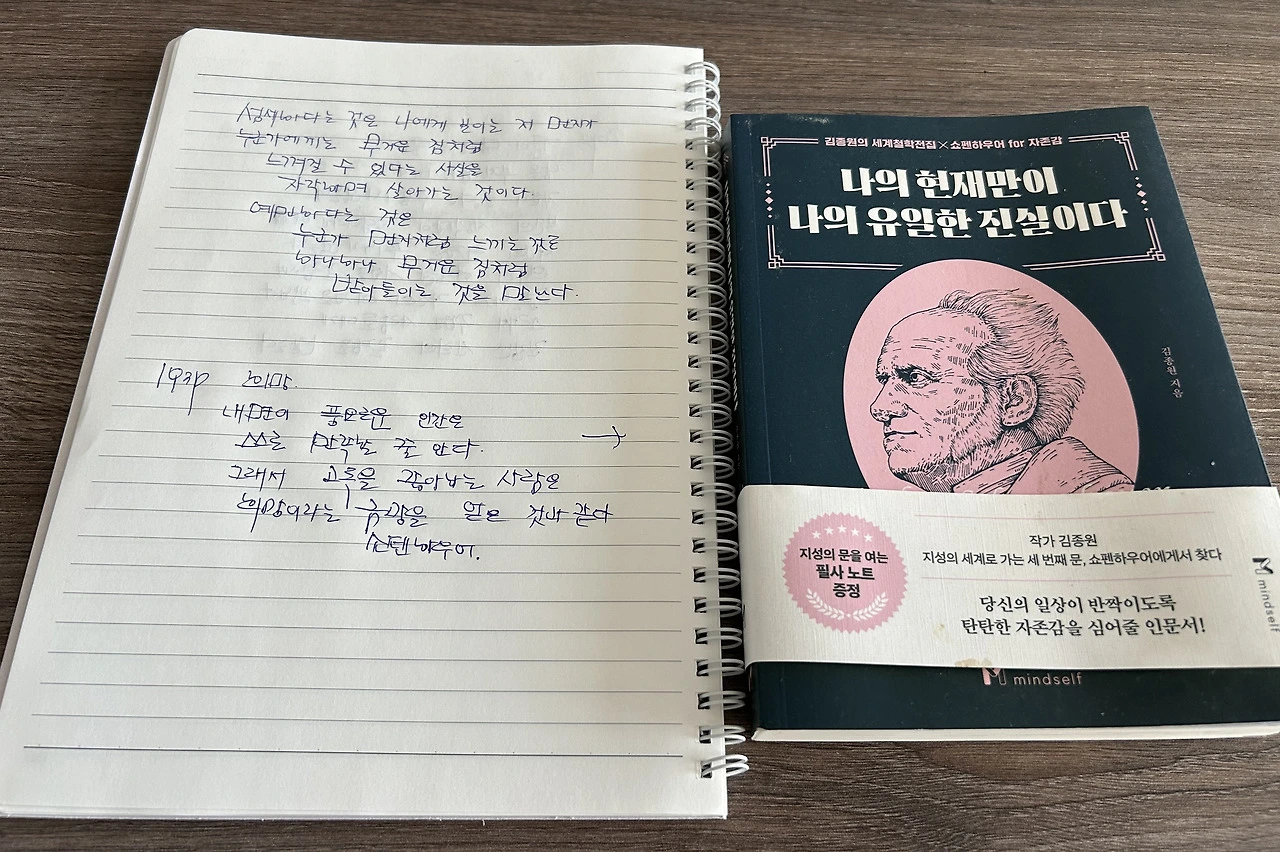 섬세하다는 것은 나에게 보이는 저 먼지가
누군가에게는 무거운 짐처럼
느껴질 수 있다는 사실을
자각하며 살아가는 것이다.
예민하다는 것은
누군가 먼지처럼 느끼는 것을
하나하나 무거운 짐처럼
받아들이는 것을 말한다.
희망.
내면이 풍요로운 인간은
스로 만각할 줄 안다.
그래서 고독을 끌어안는 사람은
희망이라는 축복을 얻은 것과 같다
쇼펜하우어.
김종원의 세계철학전집×쇼펜하우어 for 자존감
나의 현재만이
나의 유일한 진실이다
김종원 지음
지성의 문을 여는
필사 노트
증정
작가 김종원
지성의 세계로 가는 세 번째 문, 쇼펜하우어에게서 찾다
당신의 일상이 반짝이도록
탄탄한 자존감을 심어줄 인문서!
mindself
mindself